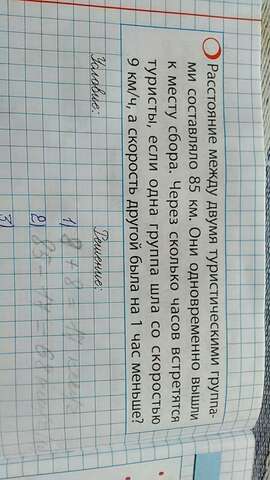 Расстояние между двумя туристическими группа-
ми составляло 85 км. Они одновременно вышли
к месту сбора. Через сколько часов встретятся
туристы, если одна группа шла со скоростью
9 км/ч, а скорость другой была на 1 час меньше?
Условие:
Решение:
1)
2) 85 - 17 = 68
3)